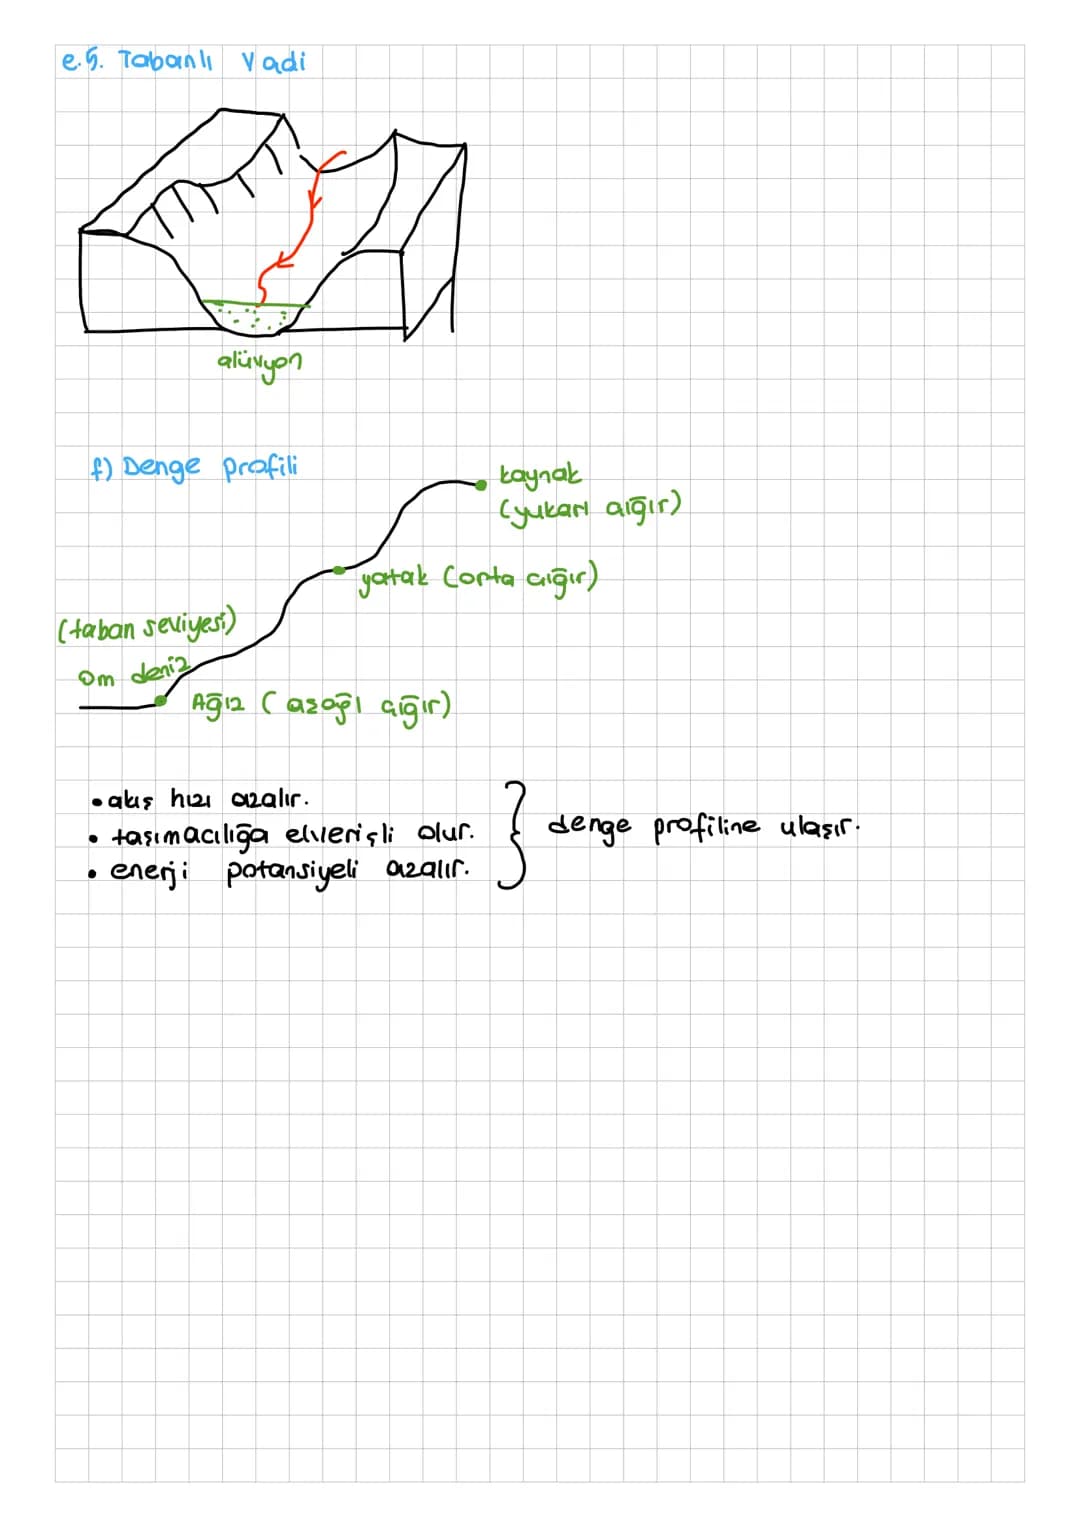 e.5. Tabanlı Vadi
alüvyon
f) Denge profili
kaynak
(yukarı çığır)
yatak (orta çığır)
(taban seviyesi)
0m deniz
Ağız (aşağı çığır)
• akış hızı azalır.
• taşımacılığa elverişli olur.
• enerji potansiyeli azalır.
} denge profiline ulaşır.